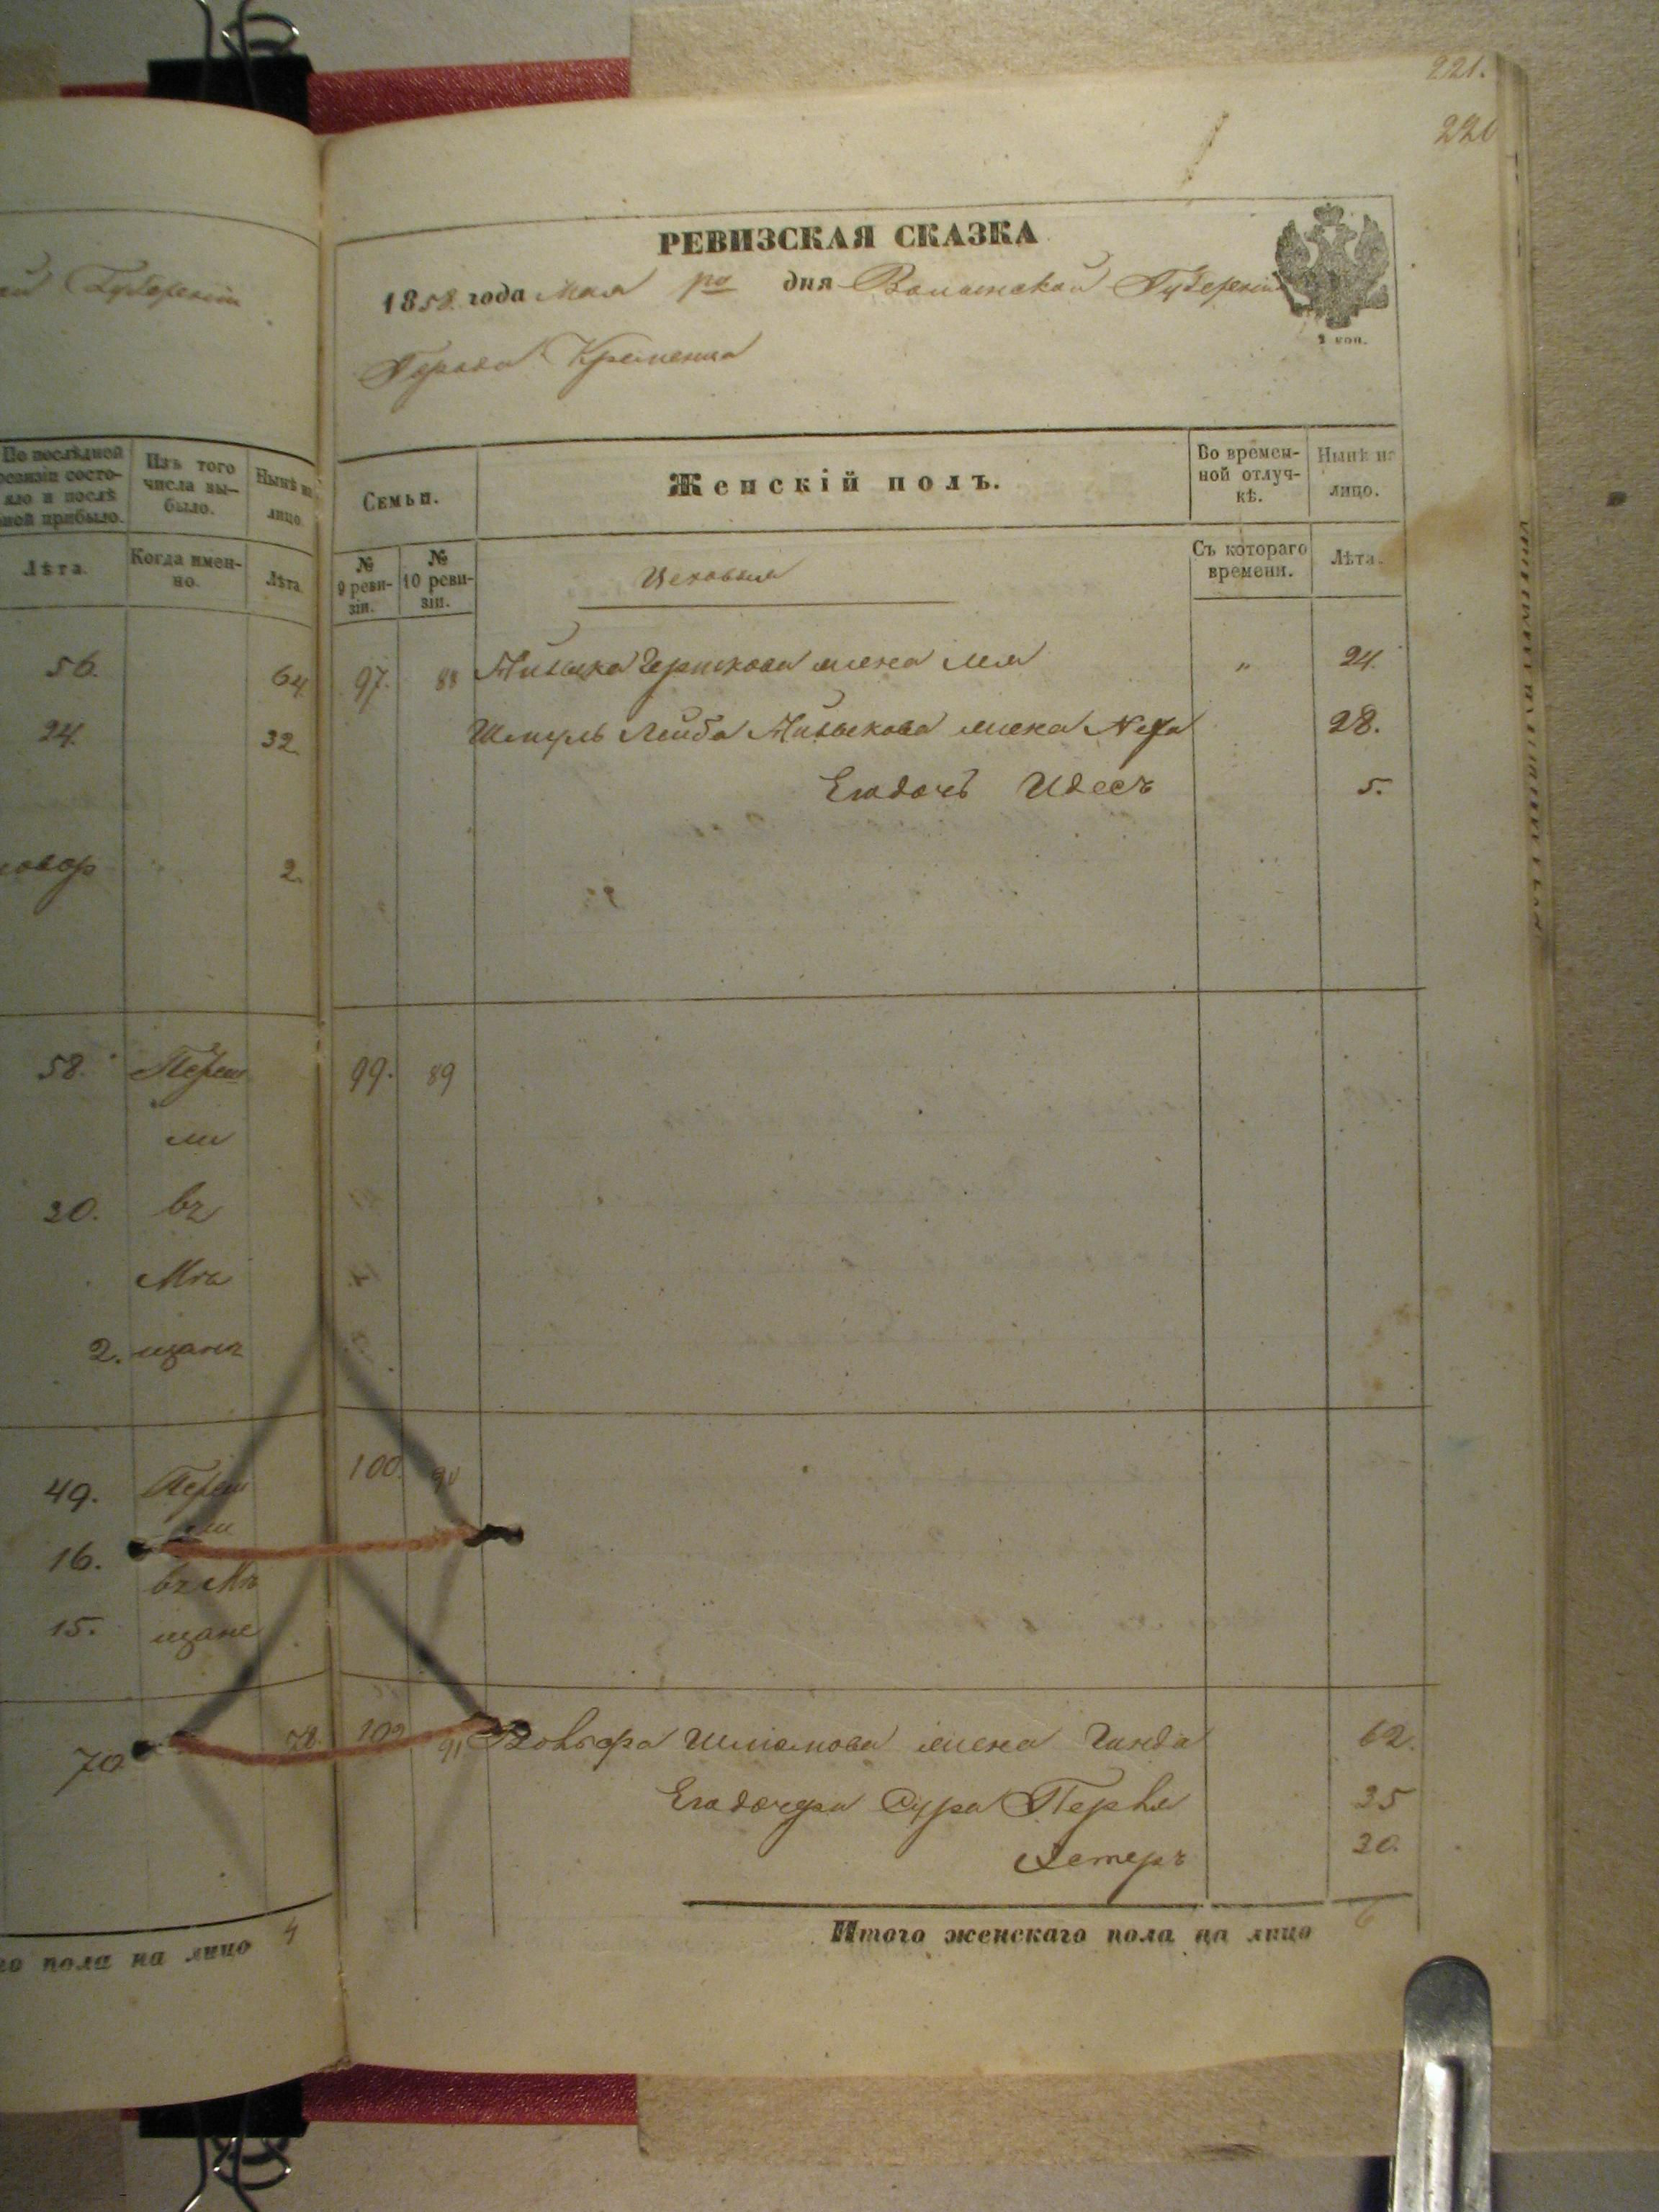 221.
220
й Губерніи
По послѣдной ревизіи состо-
яло и послѣ
ной прибыло.
Изъ того
числа вы-
было.
Нынѣ на
лицо
Лѣта.
Когда имен-
но.
Лѣта
56. 64
24. 32
2.
58. Переш
ли
20. въ
Мѣ
2. щанъ
49. Переш
ли
16. въ Мѣ
15. щане
70 78.
го пола на лицо 4
РЕВИЗСКАЯ СКАЗКА
1858 года Мая дня Волынской Губерніи
2 коп.
Города Кременца
Семьи.
Женскій полъ.
Во времен-
ной отлуч-
кѣ.
Нынѣ на
лицо.
№
9 реви-
зіи.
№
10 реви-
зіи.
Цеховыя
Съ котораго
времени.
Лѣта.
97. 88 Гершкова жена Лея " 24.
Шмуль Лейба жена 28.
Его дочь Идесъ 5.
99. 89
100. 90
102 91 Вольфа Шлiомова жена Гинда 62.
Его дочери Сура Перля 25
Эстеръ 20.
Итого женскаго пола на лицо 6